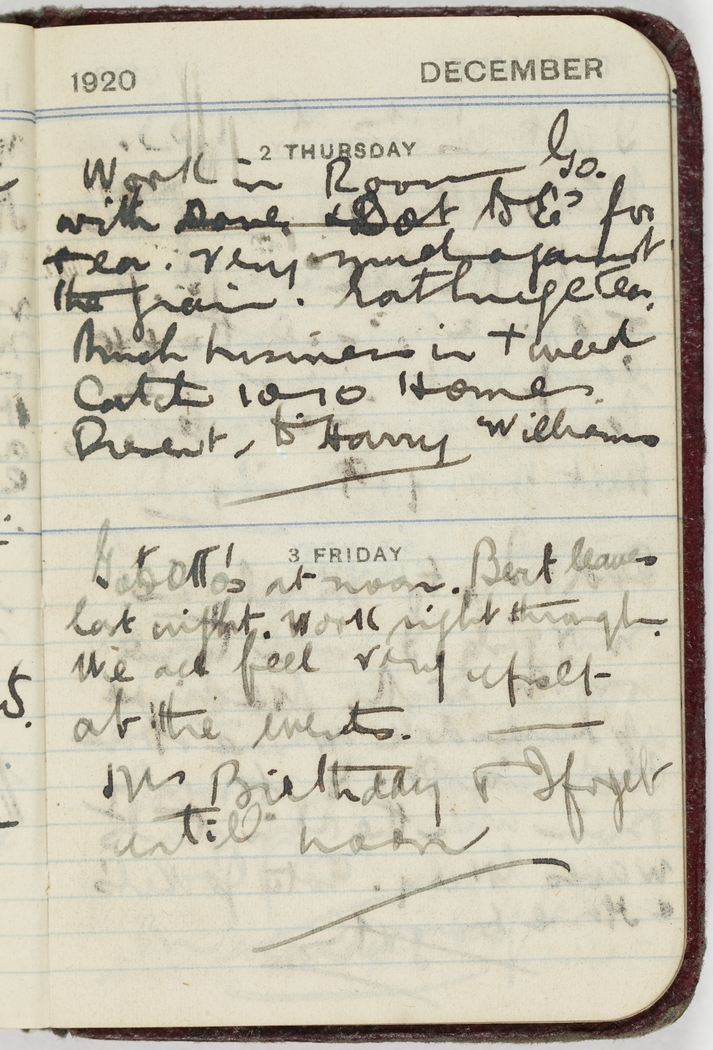 1920 DECEMBER
2 THURSDAY
Work in Room Go.
with Dove & Dot to E's for
tea. very much against
the grain. hot huge tea.
Much business in tweed
Catch 10-10 Home.
Present, to Harry Williams
3 FRIDAY
G to Ott's at noon. Bert leaves
last night. Work right through.
We all feel very upset
at the events.
M's Birthday & I forget
until noon